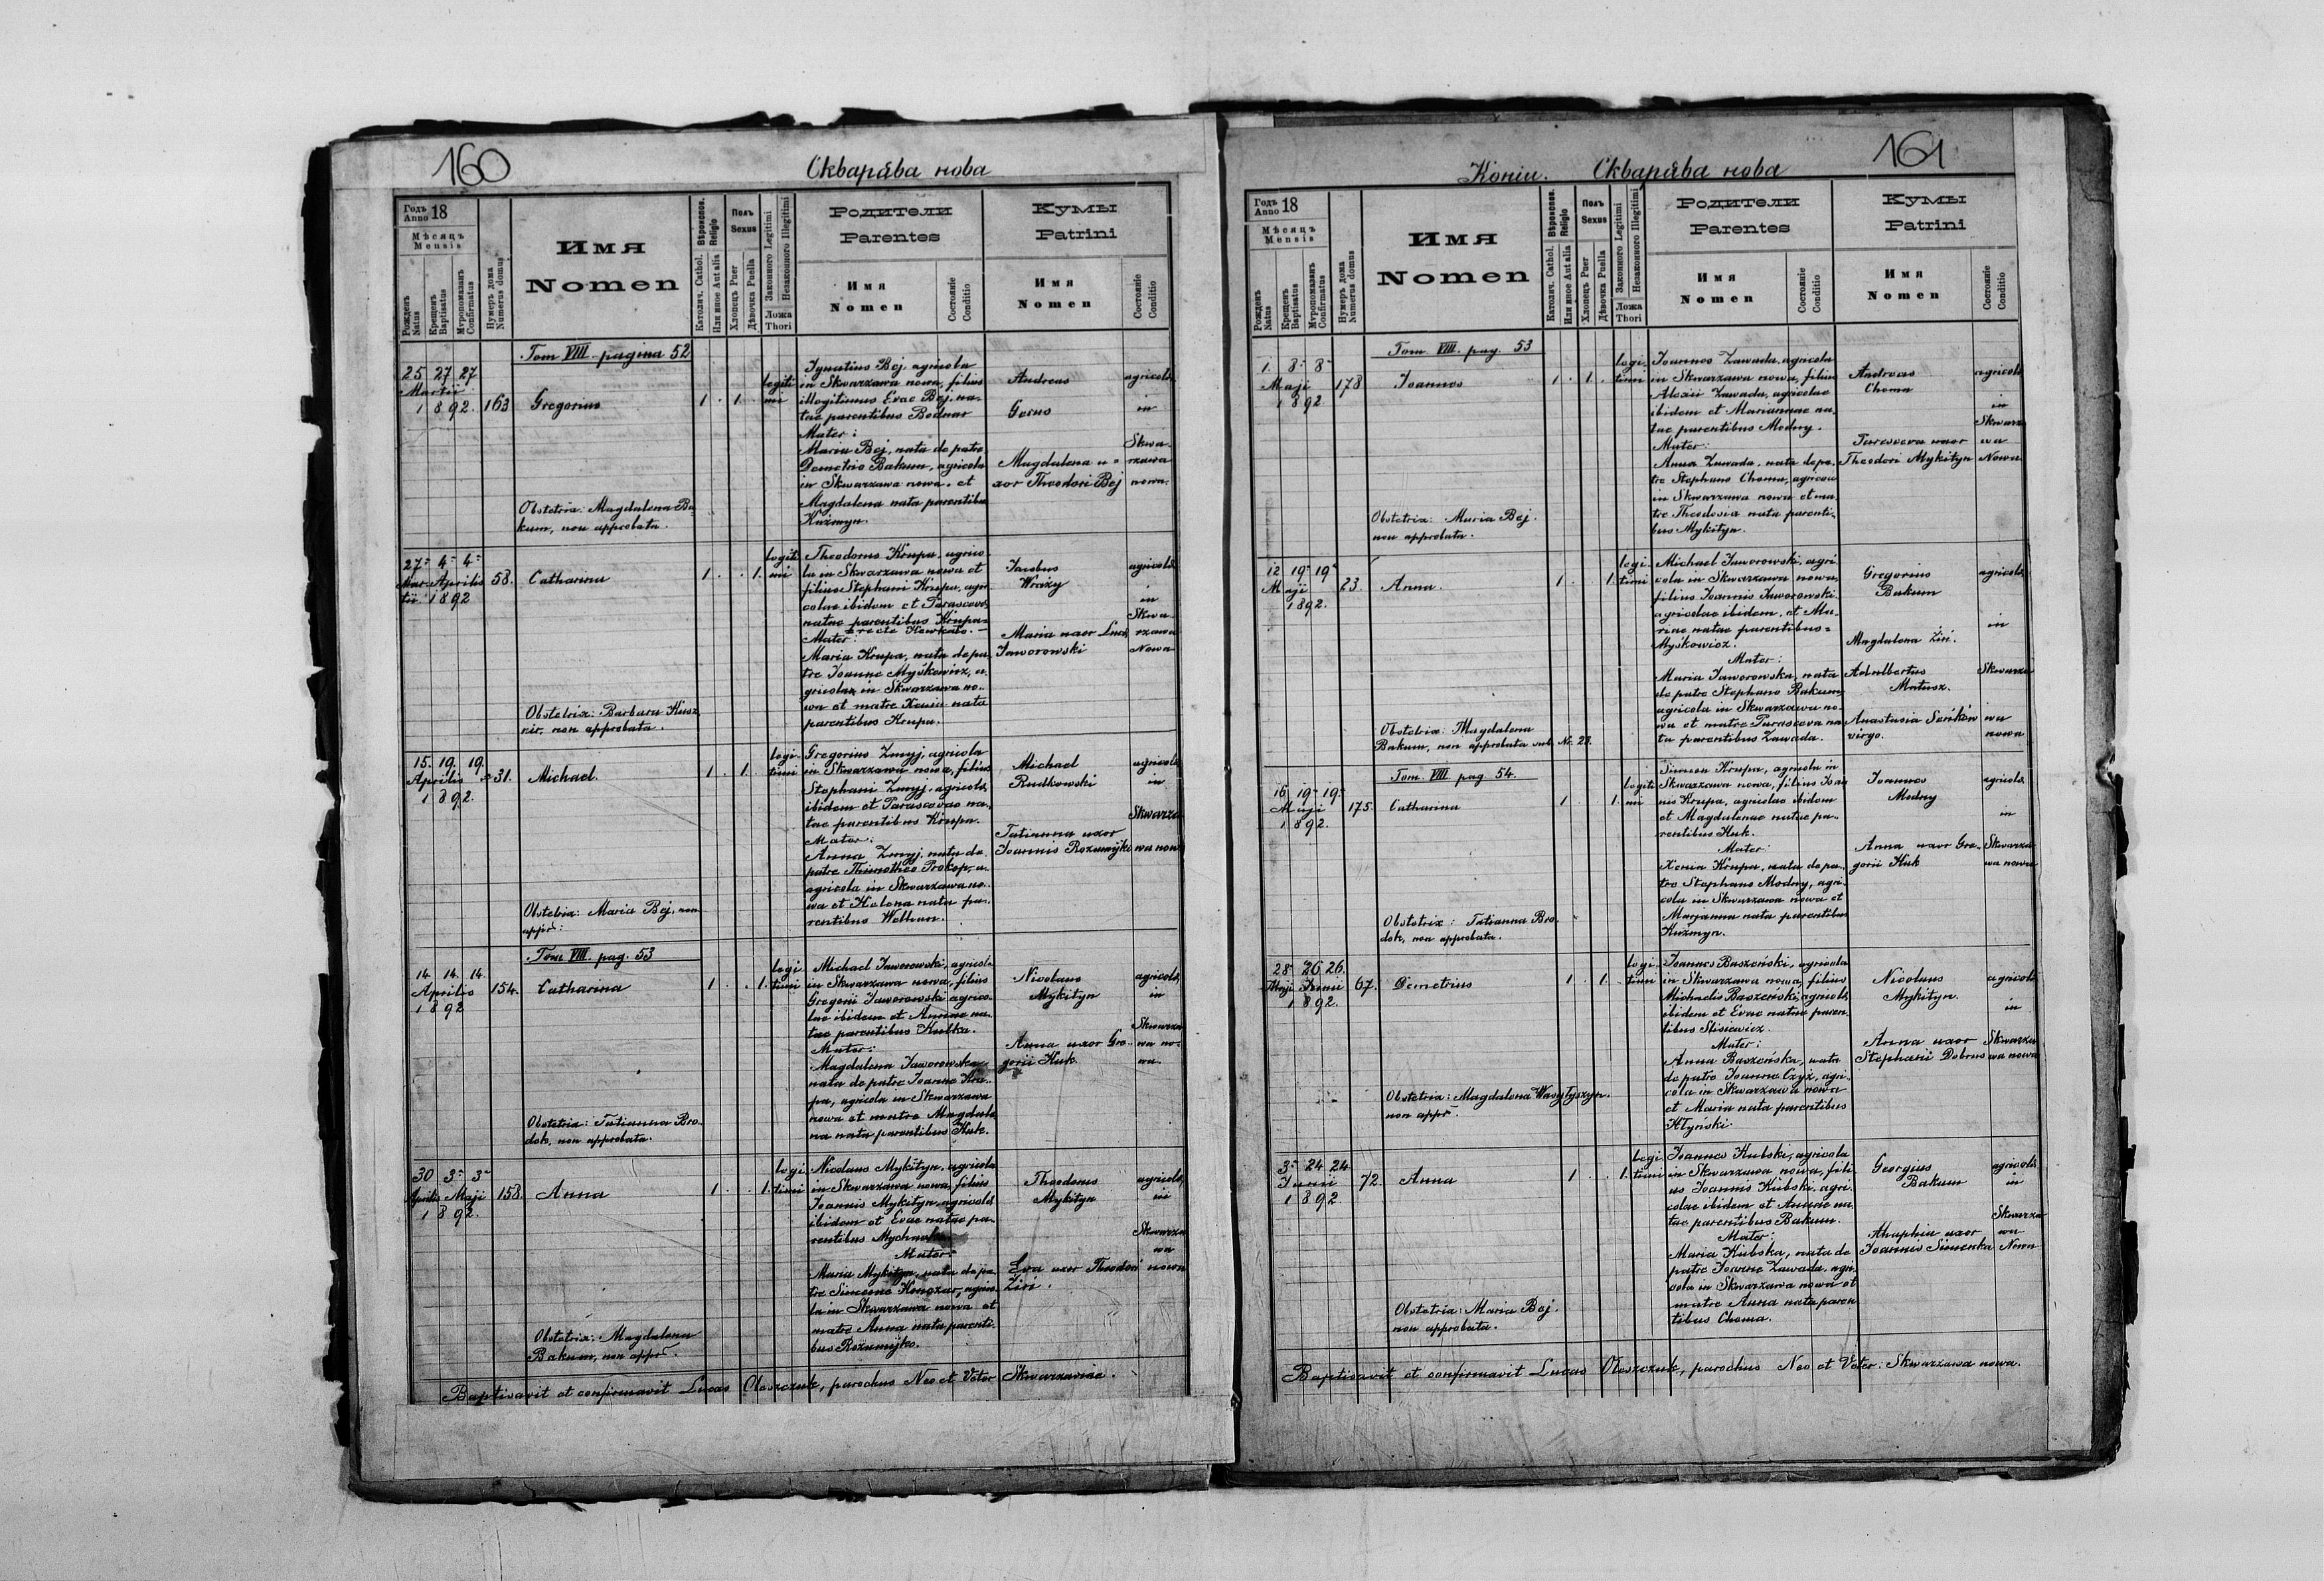 160
Скварѧва нова
Годъ Anno 18
Мѣсяцъ
Mensis
Рожденъ Natus
Крещенъ Baptisatus
Мѵропомазанъ Confirmatus
Нумеръ дома Numerus domus
Имя
Nomen
Вѣроиспов. Religio
Католич. Cathol.
Или иное Aut alia
Полъ
Sexus
Хлопецъ Puer
Дѣвочка Puella
Законного Legitimi
Незаконного Illegitimi
Ложа
Thori
Родители
Parentes
Имя
Nomen
Состояніе
Conditio
Кумы
Patrini
Имя
Nomen
Состояніе
Conditio
Tom VIII pagina 52
25 27 27
Martii
1892. 163
Gregorius
1 . 1 .
legiti
mi
Ignatius Bej agricola
in Skwarzawa nowa, filius
illegitimus Evae Bej, na-
tae parentibus Bodnar
Mater:
Maria Bej, nata de patre
Demetrio Bakum, agricola
in Skwarzawa nowa et
Magdalena nata parentibus
Kuźmyn.
Andreas
Gerus
Magdalena u-
xor Theodori Bej
agricolae
in
Skwa-
rzawa
nowa.
Obstetrix: Magdalena Ba-
kum, non approbata.
27 4 4
Mar- Aprilis
tii 1892
58.
Catharina
1 . . 1.
legiti
mi
Theodorus Krupa, agrico
la in Skwarzawa nowa et
filius Stephani Krupa, agri
colae ibidem et Parascevae
natae parentibus Krupa-
recte Hawkalo.
Mater:
Maria Krupa, nata de pa-
tre Joanne Myśkowicz, a-
gricola in Skwarzawa no-
wa et matre Xenia nata
parentibus Krupa.
Jacobus
Wraży
Maria uxor Lucae
Jaworowski
agricolae
in
Skwa
rzawa
Nowa
Obstetrix: Barbara Kusz
nir, non approbata.
15. 19. 19.
Aprilis
1892.
31.
Michael.
1 . 1 .
legi-
timi
Gregorius Zmyj, agricola
in Skwarzawa nowa, filius
Stephani Zmyj, agricolae
ibidem et Parascevae na-
tae parentibus Krupa.
Mater:
Anna Zmyj, nata de
patre Thimotheo Prokop, a-
agricola in Skwarzawa no-
wa et Helena nata pa-
rentibus Welhan.
Michael
Rudkowski
Tatianna uxor
Joannis Rozumijko
agricolae
in
Skwarza
wa nowa
Obstetrix: Maria Bej, non
appr:
Tom VIII pag. 53
14. 14. 14.
Aprilis
1892
154.
Catharina
1 . . 1.
legi
timi
Michael Jaworowski, agricola
in Skwarzawa nowa, filius
Gregorii Jaworowski agrico-
lae ibidem et Annae na-
tae parentibus Kulka.
Mater:
Magdalena Jaworowska
nata de patre Joanne Kru-
pa, agricola in Skwarzawa
nowa et matre Magdale
na nata parentibus Kuk.
Nicolaus
Mykityn
Anna uxor Gre-
gorii Kuk.
agricolae
in
Skwarza
wa no-
wa.
Obstetrix: Tatianna Bro-
dok, non approbata.
30 3 3
Aprilis Maji
1892.
158.
Anna
1 . . 1.
legi
timi
Nicolaus Mykityn, agricola
in Skwarzawa nowa, filius
Joannis Mykityn, agricolae
ibidem et Evae natae pa-
rentibus
Mater:
Maria Mykityn, nata de pa
tre Simeone agrico
la in Skwarzawa nowa et
matre Anna nata parenti-
bus Rozumijko.
Theodorus
Mykityn
Eva uxor Theodori
Ziri.
agricolae
in
Skwarza
wa
nowa
Obstetrix: Magdalena
Bakum, non appr.
Baptisavit et confirmavit Lucas Oleszczuk, parochus Neo et Veter Skwarzaviae.
161
Koniu. Скварѧва нова
Годъ Anno 18
Мѣсяцъ
Mensis
Рожденъ Natus
Крещенъ Baptisatus
Мѵропомазанъ Confirmatus
Нумеръ дома Numerus domus
Имя
Nomen
Вѣроиспов. Religio
Католич. Cathol.
Или иное Aut alia
Полъ
Sexus
Хлопецъ Puer
Дѣвочка Puella
Законного Legitimi
Незаконного Illegitimi
Ложа
Thori
Родители
Parentes
Имя
Nomen
Состояніе
Conditio
Кумы
Patrini
Имя
Nomen
Состояніе
Conditio
Tom. VIII. pag. 53
1. 8 8
Maji
1892
178
Joannes
1 . 1 .
legi-
timi
Joannes Zawada, agricola
in Skwarzawa nowa, filius
Alexii Zawada, agricolae
ibidem et Mariannae na-
tae parentibus Modny.
Mater:
Anna Zawada, nata de pa-
tre Stephano Choma, agricola
in Skwarzawa nowa et ma-
tre Theodosia nata parenti-
bus Mykityn.
Andreas
Choma
Parasceva uxor
Theodori Mykityn
agricolae
in
Skwarza
wa
Nowa
Obstetrix: Maria Bej.
non approbata.
12 19 19
Maji
1892.
23.
Anna.
1 . 1.
legi-
timi
Michael Jaworowski, agri-
cola in Skwarzawa nowa,
filius Joannis Jaworowski,
agricolae ibidem, et Ma-
riae natae parentibus
Myśkowicz.
Mater:
Maria Jaworowska, nata
de patre Stephano Bakum,
agricola in Skwarzawa no-
wa et matre Parasceva na
ta parentibus Zawada.
Gregorius
Bakum
Magdalena Ziri.
Adalbertus
Matusz.
Anastasia Seńków
virgo.
agricolae
in
Skwarza
wa
nowa
Obstetrix: Magdalena
Bakum, non approbata sub Nr. 29.
Tom. VIII pag. 54.
16 19 19
Maji
1892.
175.
Catharina
1 . 1.
legiti
mi
Simeon Krupa, agricola in
Skwarzawa nowa, filius Joan
nis Krupa, agricolae ibidem
et Magdalenae natae pa-
rentibus Kuk.
Mater:
Xenia Krupa, nata de pa-
tre Stephano Modny, agri-
cola in Skwarzawa nowa et
Marianna nata parentibus
Kuźmyn.
Joannes
Modny
Anna uxor Gre-
gorii Kuk
agricolae
in
Skwarza
wa nowa
Obstetrix: Tatianna Bro-
dok, non approbata.
28 26 26.
Maji Junii
1892.
67.
Demetrius
1 . 1.
legi-
timi
Joannes Baszeński, agricola
in Skwarzawa nowa, filius
Michaelis Baszeński, agricolae
ibidem et Evae natae paren-
tibus Stisiewicz.
Mater:
Anna Baszeńska, nata
de patre Joanne Czyż, agri-
cola in Skwarzawa nowa
et Maria nata parentibus
Kłynski.
Nicolaus
Mykityn.
Anna uxor
Stephani Dobrus
agricolae
in
Skwarza
wa nowa
Obstetrix: Magdalena Wasylyszyn.
non appr.
3 24 24
Junii
1892
72.
Anna
1 . . 1.
legi-
timi
Joannes Kubski, agricola
in Skwarzawa nowa, fili-
us Joannis Kubski, agri-
colae ibidem et Annae na-
tae parentibus Bakum.
Mater:
Maria Kubska, nata de
patre Joanne Zawada, agri-
cola in Skwarzawa nowa et
matre Anna nata paren
tibus Choma.
Georgius
Bakum
Ahaphia uxor
Joannis Simenka
agricolae
in
Skwarza
wa
Nowa
Obstetrix: Maria Bej.
non approbata.
Baptisavit et confirmavit Lucas Oleszczuk, parochus Neo et Veter: Skwarzawa nowa.